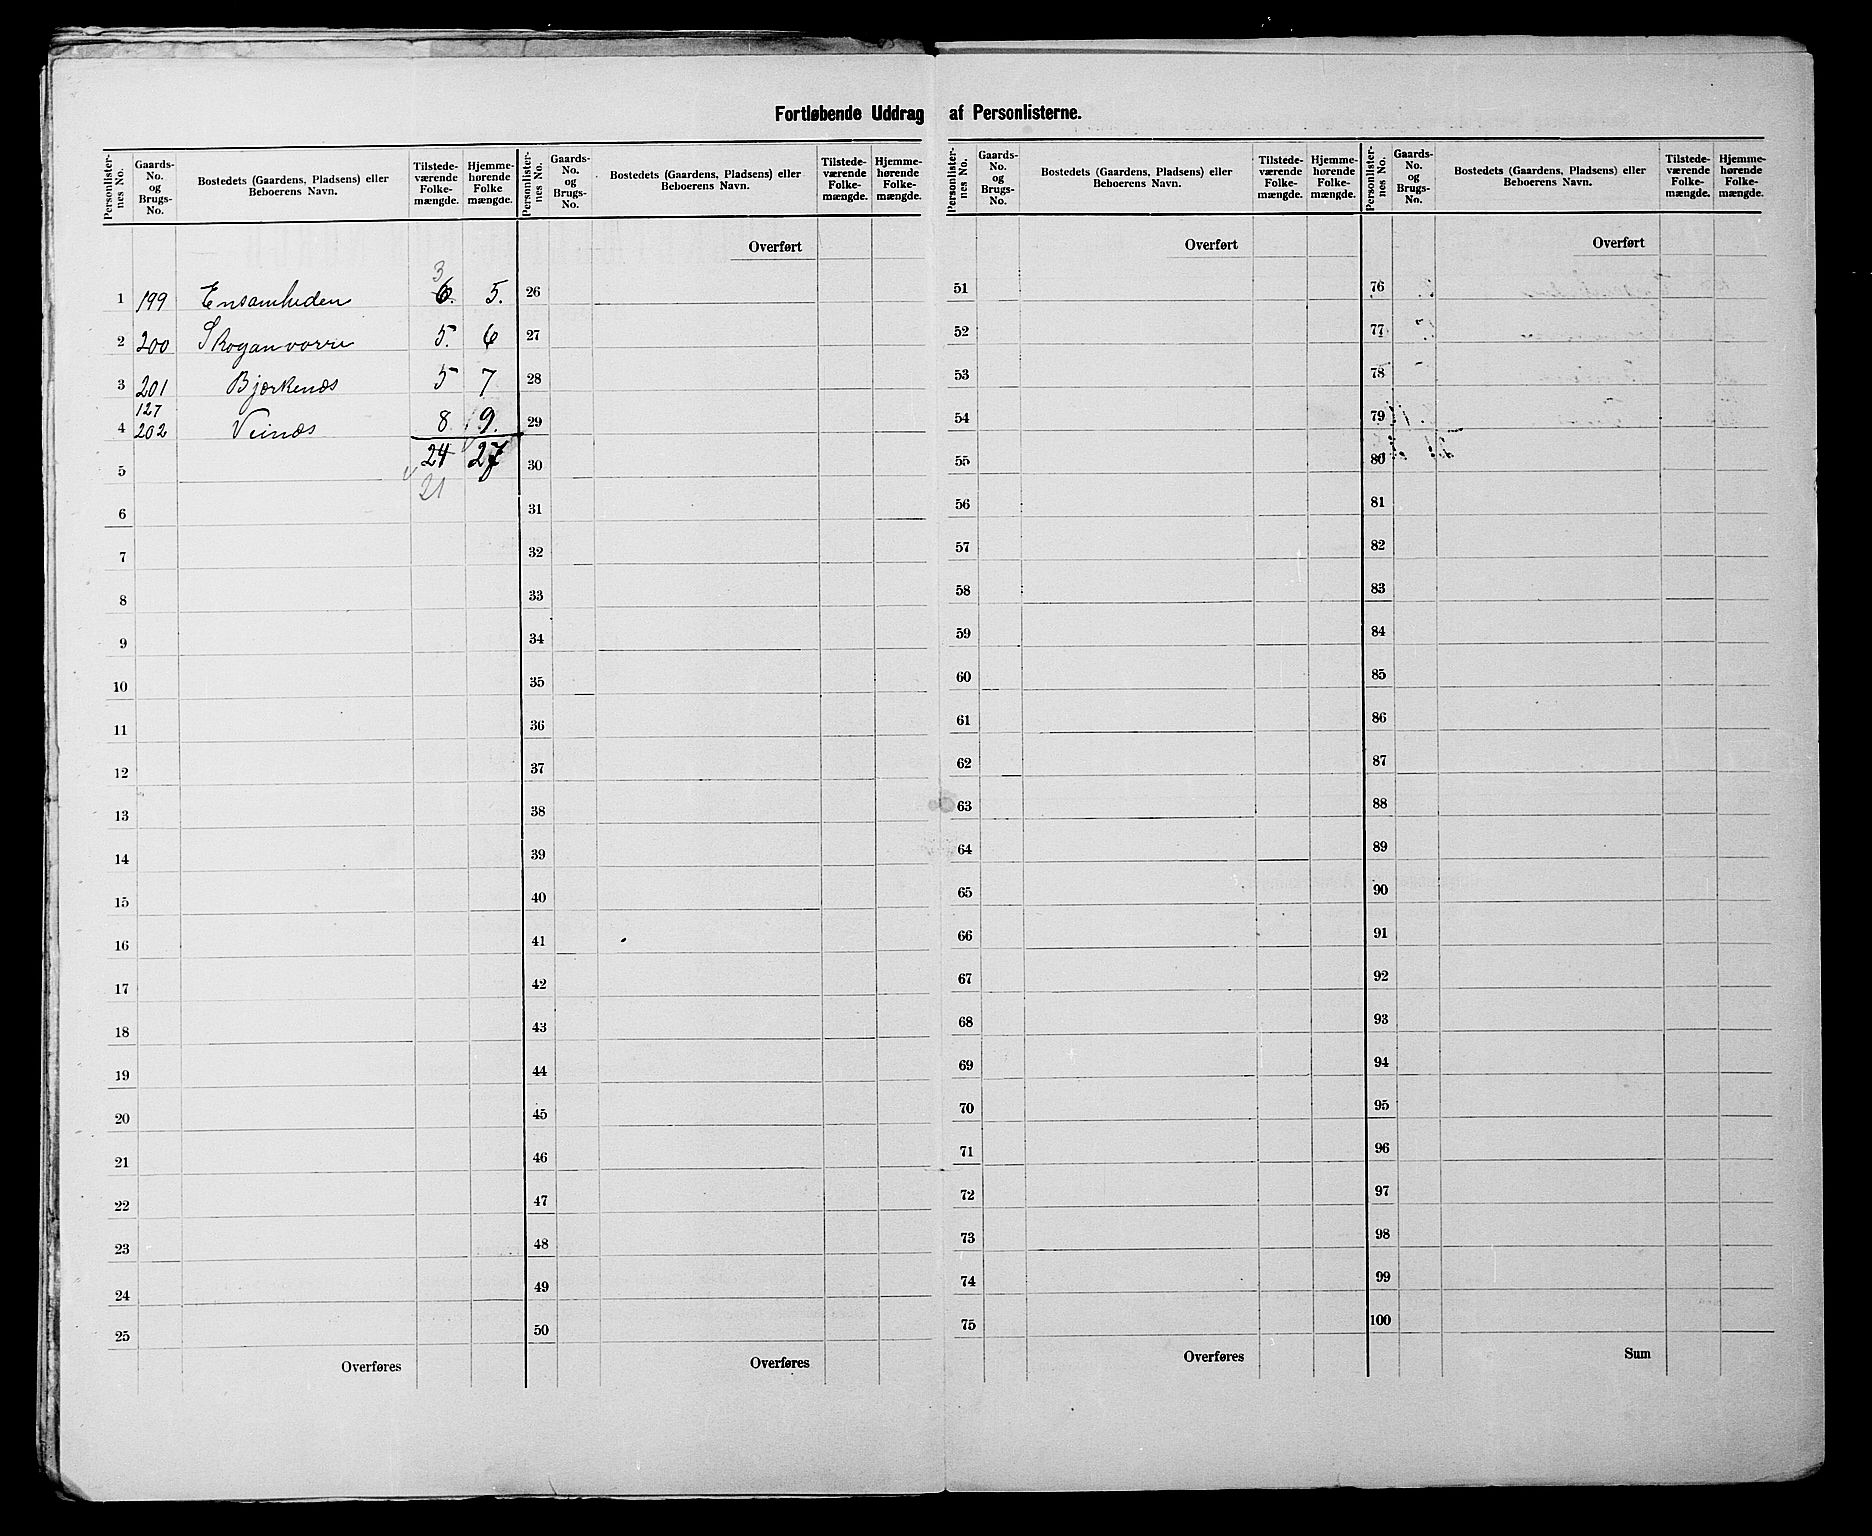 Fortløbende Uddrag af Personlisterne.
Personlister-nes No. Gaards-No. og Brugs-No. Bostedets (Gaardens, Pladsens) eller Beboerens Navn. Tilstede-værende Folke-mængde. Hjemme-hørende Folke mængde.
3
1 199 Ensamheden 6. 5.
2 200 Skoganvorre 5. 6
3 201 Bjørkenæs 5 7
127
4 202 Veinæs 8 9.
5 24 27
21
6
7
8
9
10
11
12
13
14
15
16
17
18
19
20
21
22
23
24
25
Overføres
Personlister-nes No. Gaards-No. og Brugs-No. Bostedets (Gaardens, Pladsens) eller Beboerens Navn. Tilstede-værende Folke-mængde. Hjemme-hørende Folke-mængde.
Overført
26
27
28
29
30
31
32
33
34
35
36
37
38
39
40
41
42
43
44
45
46
47
48
49
50
Overføres
Personlister-nes No. Gaards-No. og Brugs-No. Bostedets (Gaardens, Pladsens) eller Beboerens Navn. Tilstede-værende Folke-mængde. Hjemme-hørende Folke-mængde.
Overført
51
52
53
54
55
56
57
58
59
60
61
62
63
64
65
66
67
68
69
70
71
72
73
74
75
Overføres
Personlister-nes No. Gaards-No. og Brugs-No. Bostedets (Gaardens, Pladsens) eller Beboerens Navn. Tilstede-værende Folke-mængde. Hjemme-hørende Folke-mængde.
Overført
76
77
78
79
80
81
82
83
84
85
86
87
88
89
90
91
92
93
94
95
96
97
98
99
100
Sum